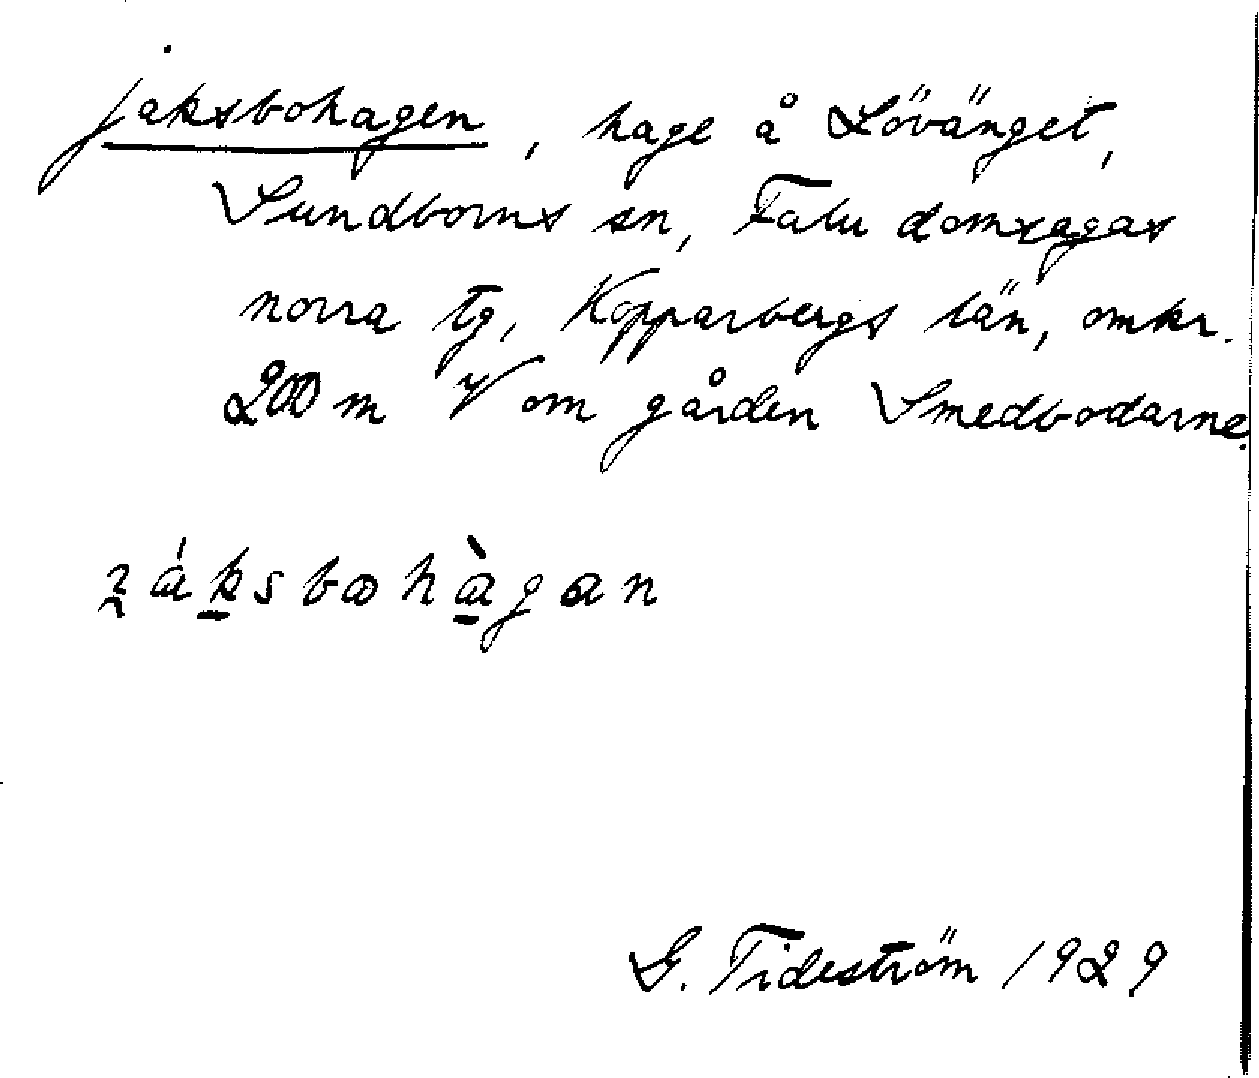 jaksbohagen, hage å Lövänget,
Sundborns sn, Falu domsagas
norra tg, Kopparbergs län, omkr.
200 m V om gården Smedbodarne.
G. Tideström 1929